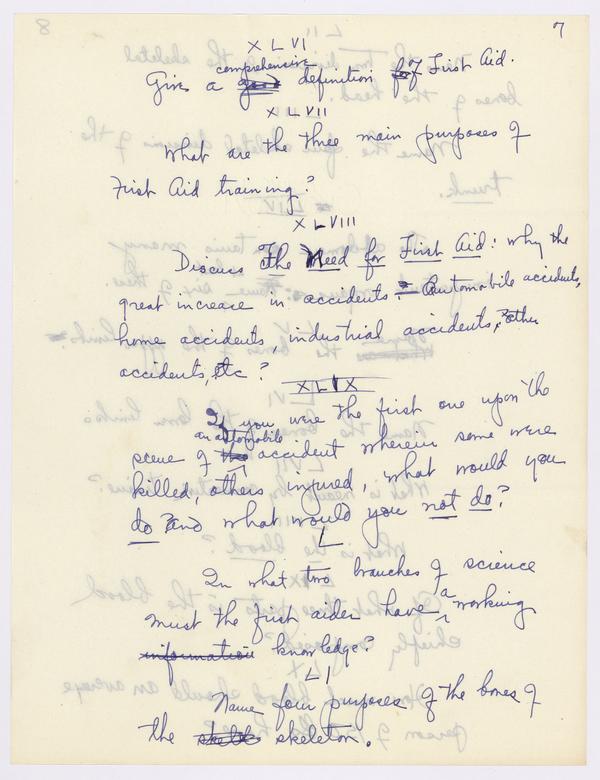 7
XLVI
comprehensive
Give a good definition of First Aid.
XLVII
What are the three main purposes of
First Aid training?
XLVIII
Discuss The Need for First Aid: Why the
great increase in accidents = Automobile accidents,
home accidents, industrial accidents, other
accidents, etc?
XLIX
If you were the first one upon the
an automobile
scene of the accident wherein some were
killed, others injured, what would you
do and what would you not do?
L
In what two branches of science
must the first aider have a working
information knowledge?
LI
Name four purposes of the bones of
the skeleton.